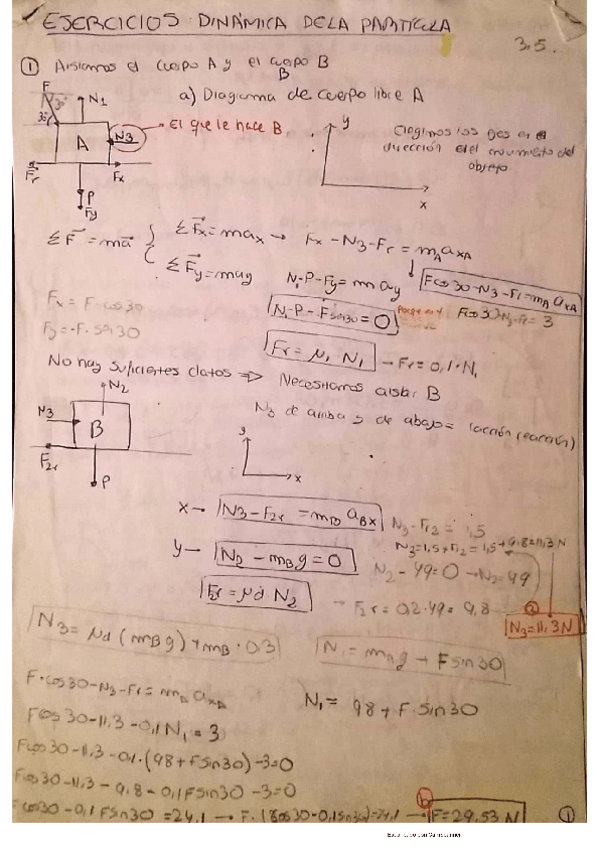 EJERCICIOS DINÁMICA DE LA PARTÍCULA
3.5.
① Aislamos el cuerpo A y el cuerpo B
B
a) Diagrama de cuerpo libre A
F
30°
30°
N1
A
N3
→ El que le hace B
Fr
Fx
P
Fy
y
x
Elegimos los ejes en la
dirección del movimiento del
objeto
ΣF = ma
ΣFx = max → Fx - N3 - Fr = mA axA
ΣFy = may
N1-P-Fy = m ay
Fcos30-N3-Fr = mA axA
Fx = F·cos30
Fy = -F·sin30
N1-P-Fsin30 = 0
Fcos30-N3-Fr = 3
Fr = μ1 N1
→ Fr = 0,1·N1
No hay suficientes datos ⇒ Necesitamos aislar B
N3 de arriba y de abajo = (acción reacción)
N2
N3
B
F2r
P
y
x
x → N3 - F2r = mB aBx
N3 - Fr2 = 1,5
N3 = 1,5 + Fr2 = 1,5 + 9.8 = 11,3 N
y → N2 - mBg = 0
N2 - 49 = 0 → N2 = 49
F2r = μd N2
→ F2r = 0.2·49 = 9,8
a
N3 = 11,3 N
N3 = μd (mBg) + mB · 0.3
N1 = mAg + Fsin30
F·cos30-N3-Fr = mA axA
N1 = 98 + F·sin30
Fcos30 - 11,3 - 0,1 N1 = 3
Fcos30 - 11,3 - 0,1·(98 + Fsin30) - 3 = 0
Fcos30 - 11,3 - 9,8 - 0,1 Fsin30 - 3 = 0
b
Fcos30 - 0,1 Fsin30 = 24,1 → F·(cos30 - 0,1sin30) = 24,1 → F = 29,53 N
①